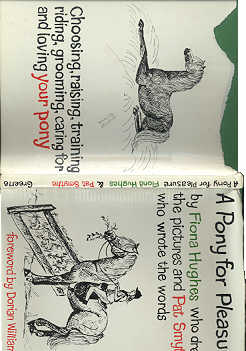 Choosing, raising, training
riding, grooming, caring for
and loving your pony
A Pony for Pleasure Fiona Hughes & Pat Smythe
A Pony for Pleasu
by Fiona Hughes who dre
the pictures and Pat Smyt
who wrote the words
foreword by Dorian William